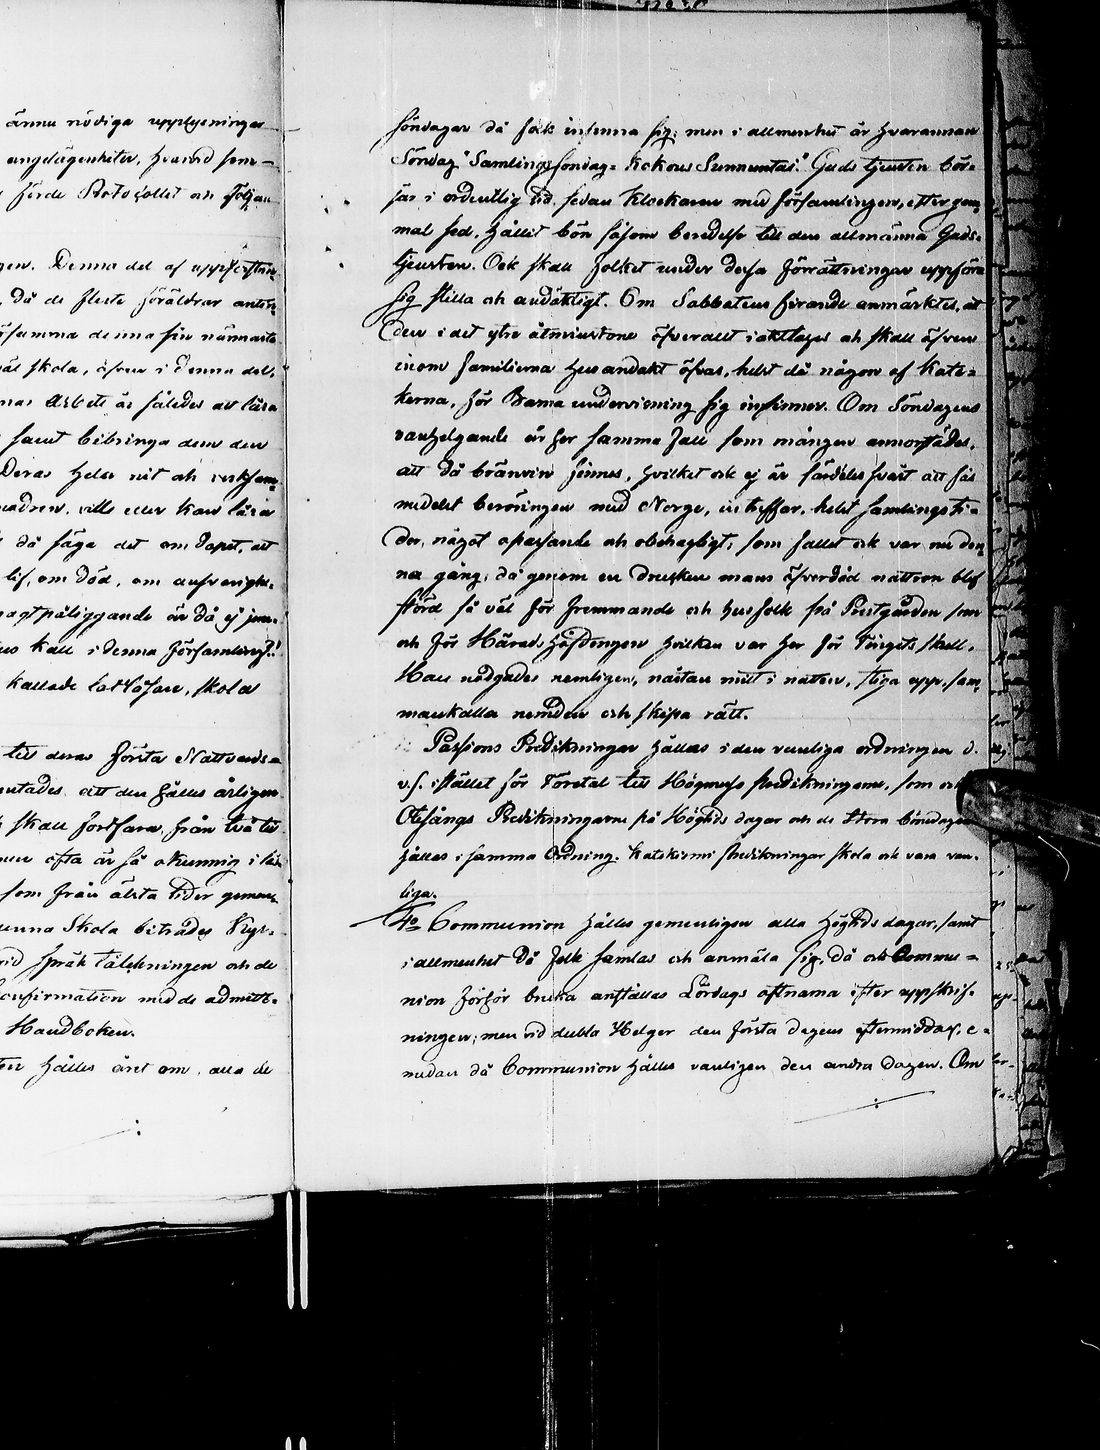 ännu nödiga upplysningar
angelägenheter, hvarvid som-
förde Protocollet och följan
gen. Denna del af uppfostrin
, då de fleste föräldrar anten
samma denna sin närmaste
skola, äfven i denna del,
nas Arbete är således att lära
samt bibringa dem den
Deras hela nit och verksam-
, ville eller kan lära
då säga det om Dopet, att
lif, om död, om
magtpåliggande är då ej
kall i denna Församling?!
kallade skola
till deras första Nattvards-
att den hålles årligen
skall fortfara, från två til
ofta är så okunnig i lä-
som från älsta tider
Skola biträdes Kyr-
vid Språk tälckningen och de
Confirmation med de admitt-
Handboken.
hålles året om, alla de
Söndagar då folk infinna sig; men i allmenhet är hvarannan
Söndag "Samlings Sondag = Kokous Sunnuntai." Guds tjensten bör-
jas i ordentlig tid, sedan Klockaren med församlingen, efter gam-
mal sed, hållit bön såsom beredelse till den allmänna Guds-
tjensten. Ock skall folket under dessa förrättningar uppföra
sig stilla och andäktigt. Om Sabbatens firande anmärktes, at
den i det yttre åtminstone öfverallt iakttages och skall äfven
inom familierna husandakt öfvas, helst då någon af Kate-
keterna, för Barna undervisning sig infinner. Om Söndagens
vanhelgande är her samma fall som mången annorstädes,
att då bränvin finnes, hvilket ock ej är särdeles svårt att fås
medelst beröringen med Norge, inträffar, helst samlingsti-
der, något opassande och obehagligt, som fallet ock var nu den-
na gång, då genom en drucken mans öfverdåd nattron blef
störd så väl för fremmande och husfolk på Prestgården som
och för Härads Höfdingen hvilken var her för Tingets skull.
Han nödgades nemligen, nästan mitt i natten, stiga upp, sam-
mankalla nemden och skipa rätt.
Passions Predikningar hållas i den vanliga ordningen d.
v. s. istället för Företal till Högmesso predikningarne, som och
Otesångs Predikningarne på Högtids dagar och de Stora böndagar
hållas i samma Ordning. Katekismi predikningar skola ock vara van-
liga.
4o Communion hålles gemenligen alla högtids dagar, samt
i allmenhet då folk samlas och anmäla sig, då ock Commu-
nion förhör bruka anställas Lördags aftnarna efter uppskrif-
ningen; men vid dubbla Helger den första dagens eftermiddag, e-
medan då Communion hålles vanligen den andra dagen. Om